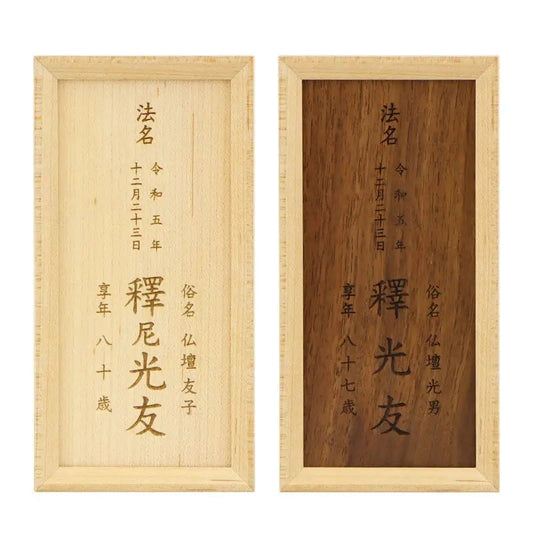 法名
令和五年
十二月二十三日
俗名 仏壇友子
釋尼光友
享年 八十歳
法名
令和五年
十二月二十三日
俗名 仏壇光男
釋光友
享年 八十七歳